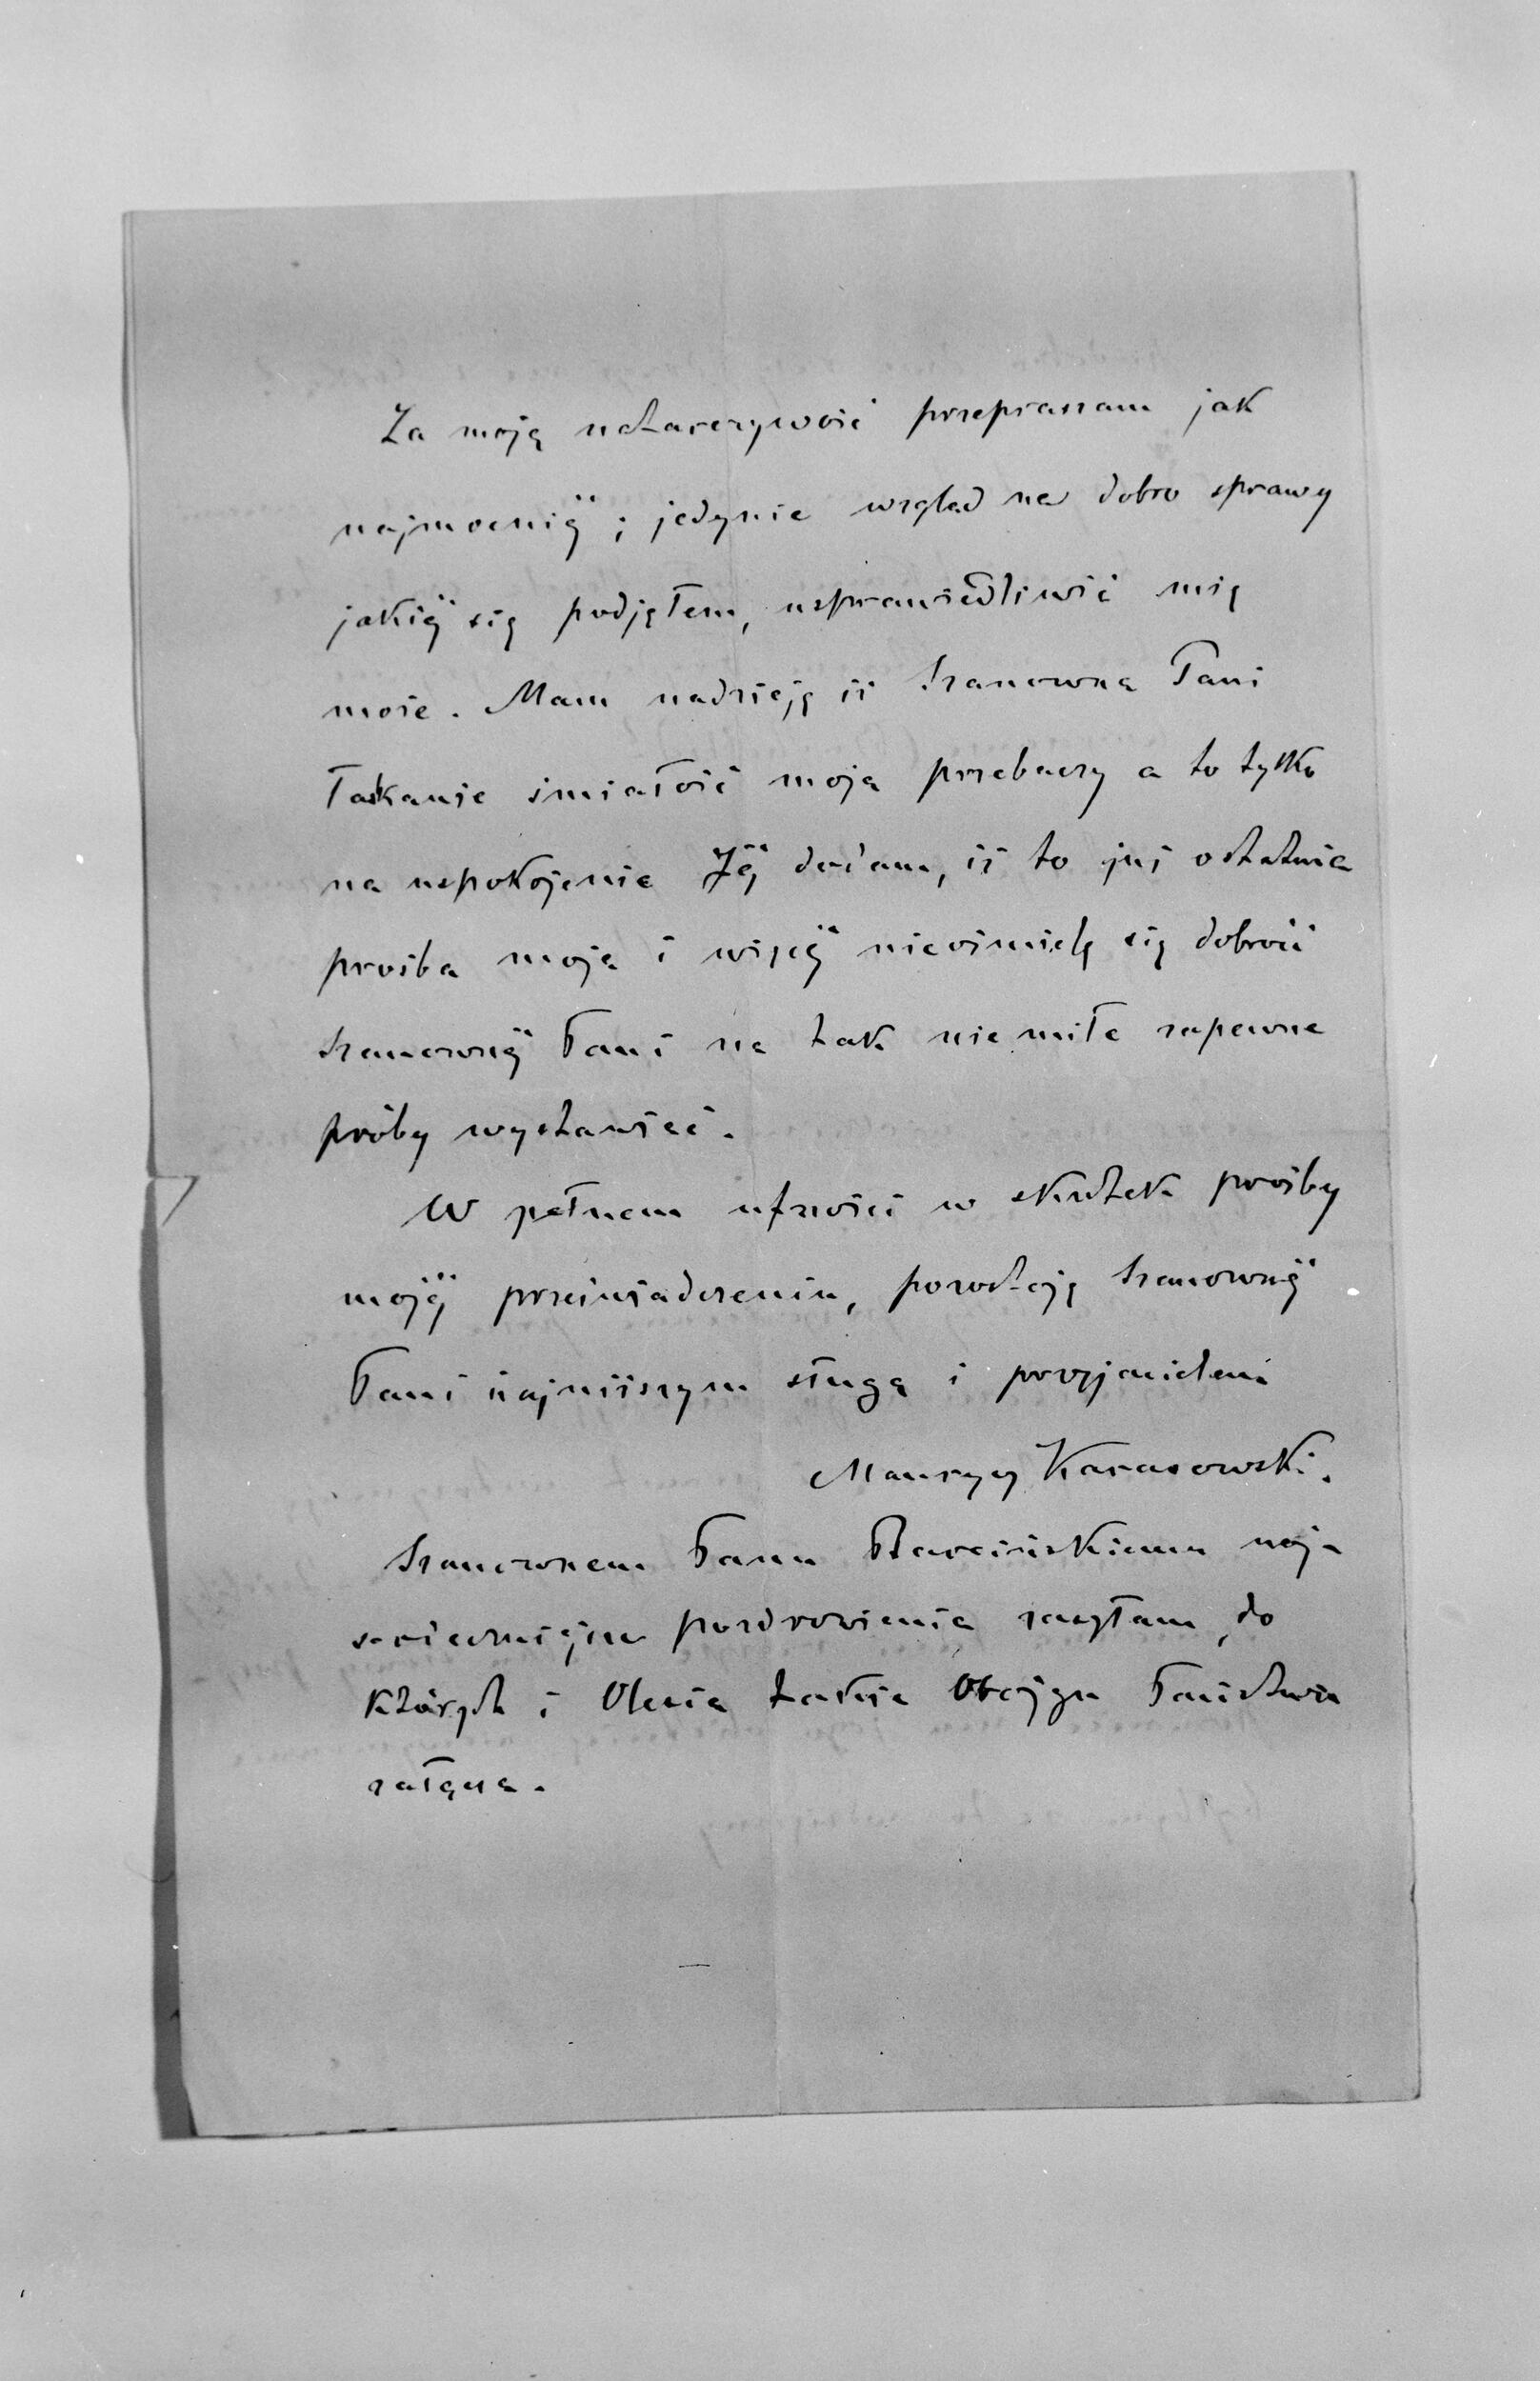 Za moją natarczywość przepraszam jak
najmocniéj; jedynie wzgląd na dobro sprawy
jakiéj się podjąłem, usprawiedliwić mię
może. Mam nadzieję iż Szanowna Pani
łaskawie śmiałość moją przebaczy a to tylko
na uspokojenie Jéj dodam, iż to już ostatnia
prośba moja i więcéj nieośmielę się dobroć
Szanownéj Pani na tak nie miłe zapewne
próby wystawiać.
W pełnem ufności w skutek prośby
mojéj przeświadczeniu, pozostaję Szanownéj
Pani najniższym sługą i przyjacielem
Maurycy Karasowski.
Szanownem Panu Barcińskiemu naj-
serdeczniejsze pozdrowienia zasyłam, do
których i Olesia także Obojgu Państwu
załącza.